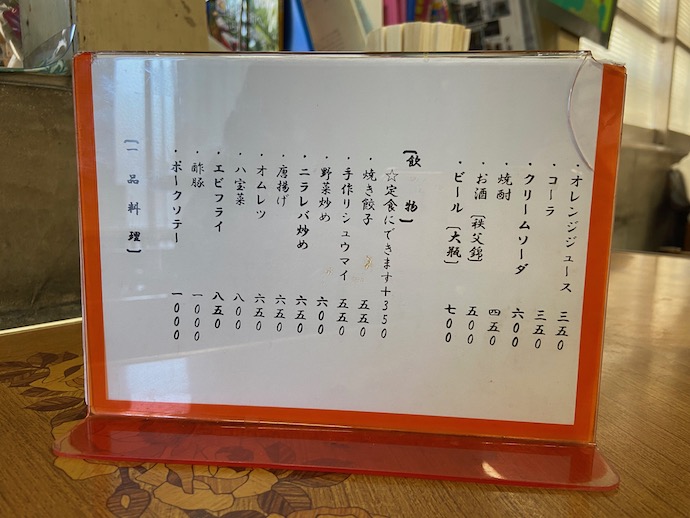 【一品料理】
・ポークソテー 一000
・酢豚 一000
・エビフライ 八五0
・八宝菜 八00
・オムレツ 六五0
・唐揚げ 六五0
・ニラレバ炒め 六五0
・野菜炒め 六00
・手作りシュウマイ 五五0
・焼き餃子 五五0
☆定食にできます+350
【飲 物】
・ビール〔大瓶〕 七00
・お酒〔秩父錦〕 五00
・焼酎 四五0
・クリームソーダ 六00
・コーラ 三五0
・オレンジジュース 三五0